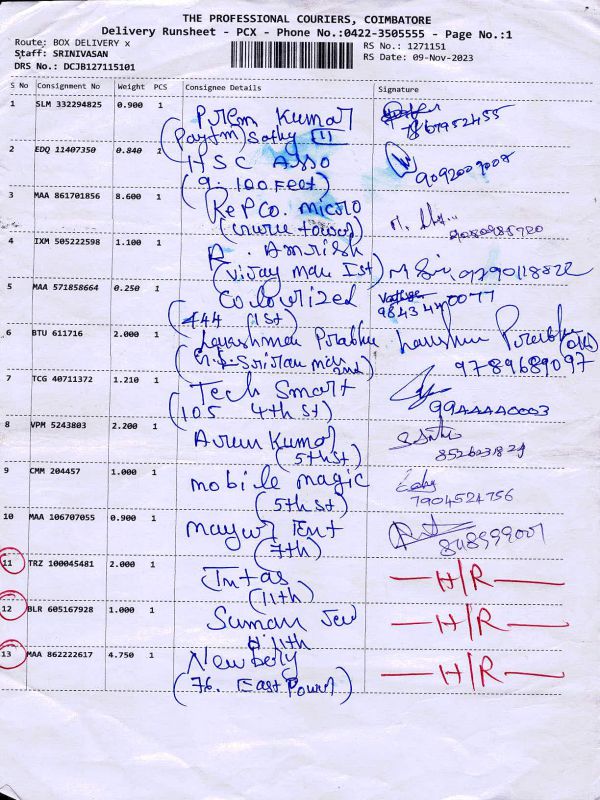 THE PROFESSIONAL COURIERS, COIMBATORE
Delivery Runsheet - PCX - Phone No.:0422-3505555 - Page No.:1
Route: BOX DELIVERY x
RS No.: 1271151
Staff: SRINIVASAN
RS Date: 09-Nov-2023
DRS No.: DCJB127115101
S No Consignment No Weight PCS Consignee Details Signature
1 SLM 332294825 0.900 1 Prem Kumar
(Paytm) Sathy
2 EDQ 11407350 0.840 1 HSC ASSO
(9. 100 Feet)
3 MAA 861701856 8.600 1 RePCo. micro
(Guru tower)
4 IXM 505222598 1.100 1 R. Amrish
(Vijay man Ist)
5 MAA 571858664 0.250 1 Colourized
(444 1st)
6 BTU 611716 2.000 1 Lakshman Prabhu
2nd)
9789689097
7 TCG 40711372 1.210 1 Tech Smart
(105 4th St)
8 VPM 5243803 2.200 1 Arun Kumar
(5th St)
9 CMM 204457 1.000 1 mobile magic
(5th St) 7904524756
10 MAA 106707055 0.900 1 mayur Ent
(7th)
11 TRZ 100045481 2.000 1 Intas H/R
(11th)
12 BLR 605167928 1.000 1 Suman Jew H/R
11th
13 MAA 862222617 4.750 1 Newbery H/R
(76. East Power)